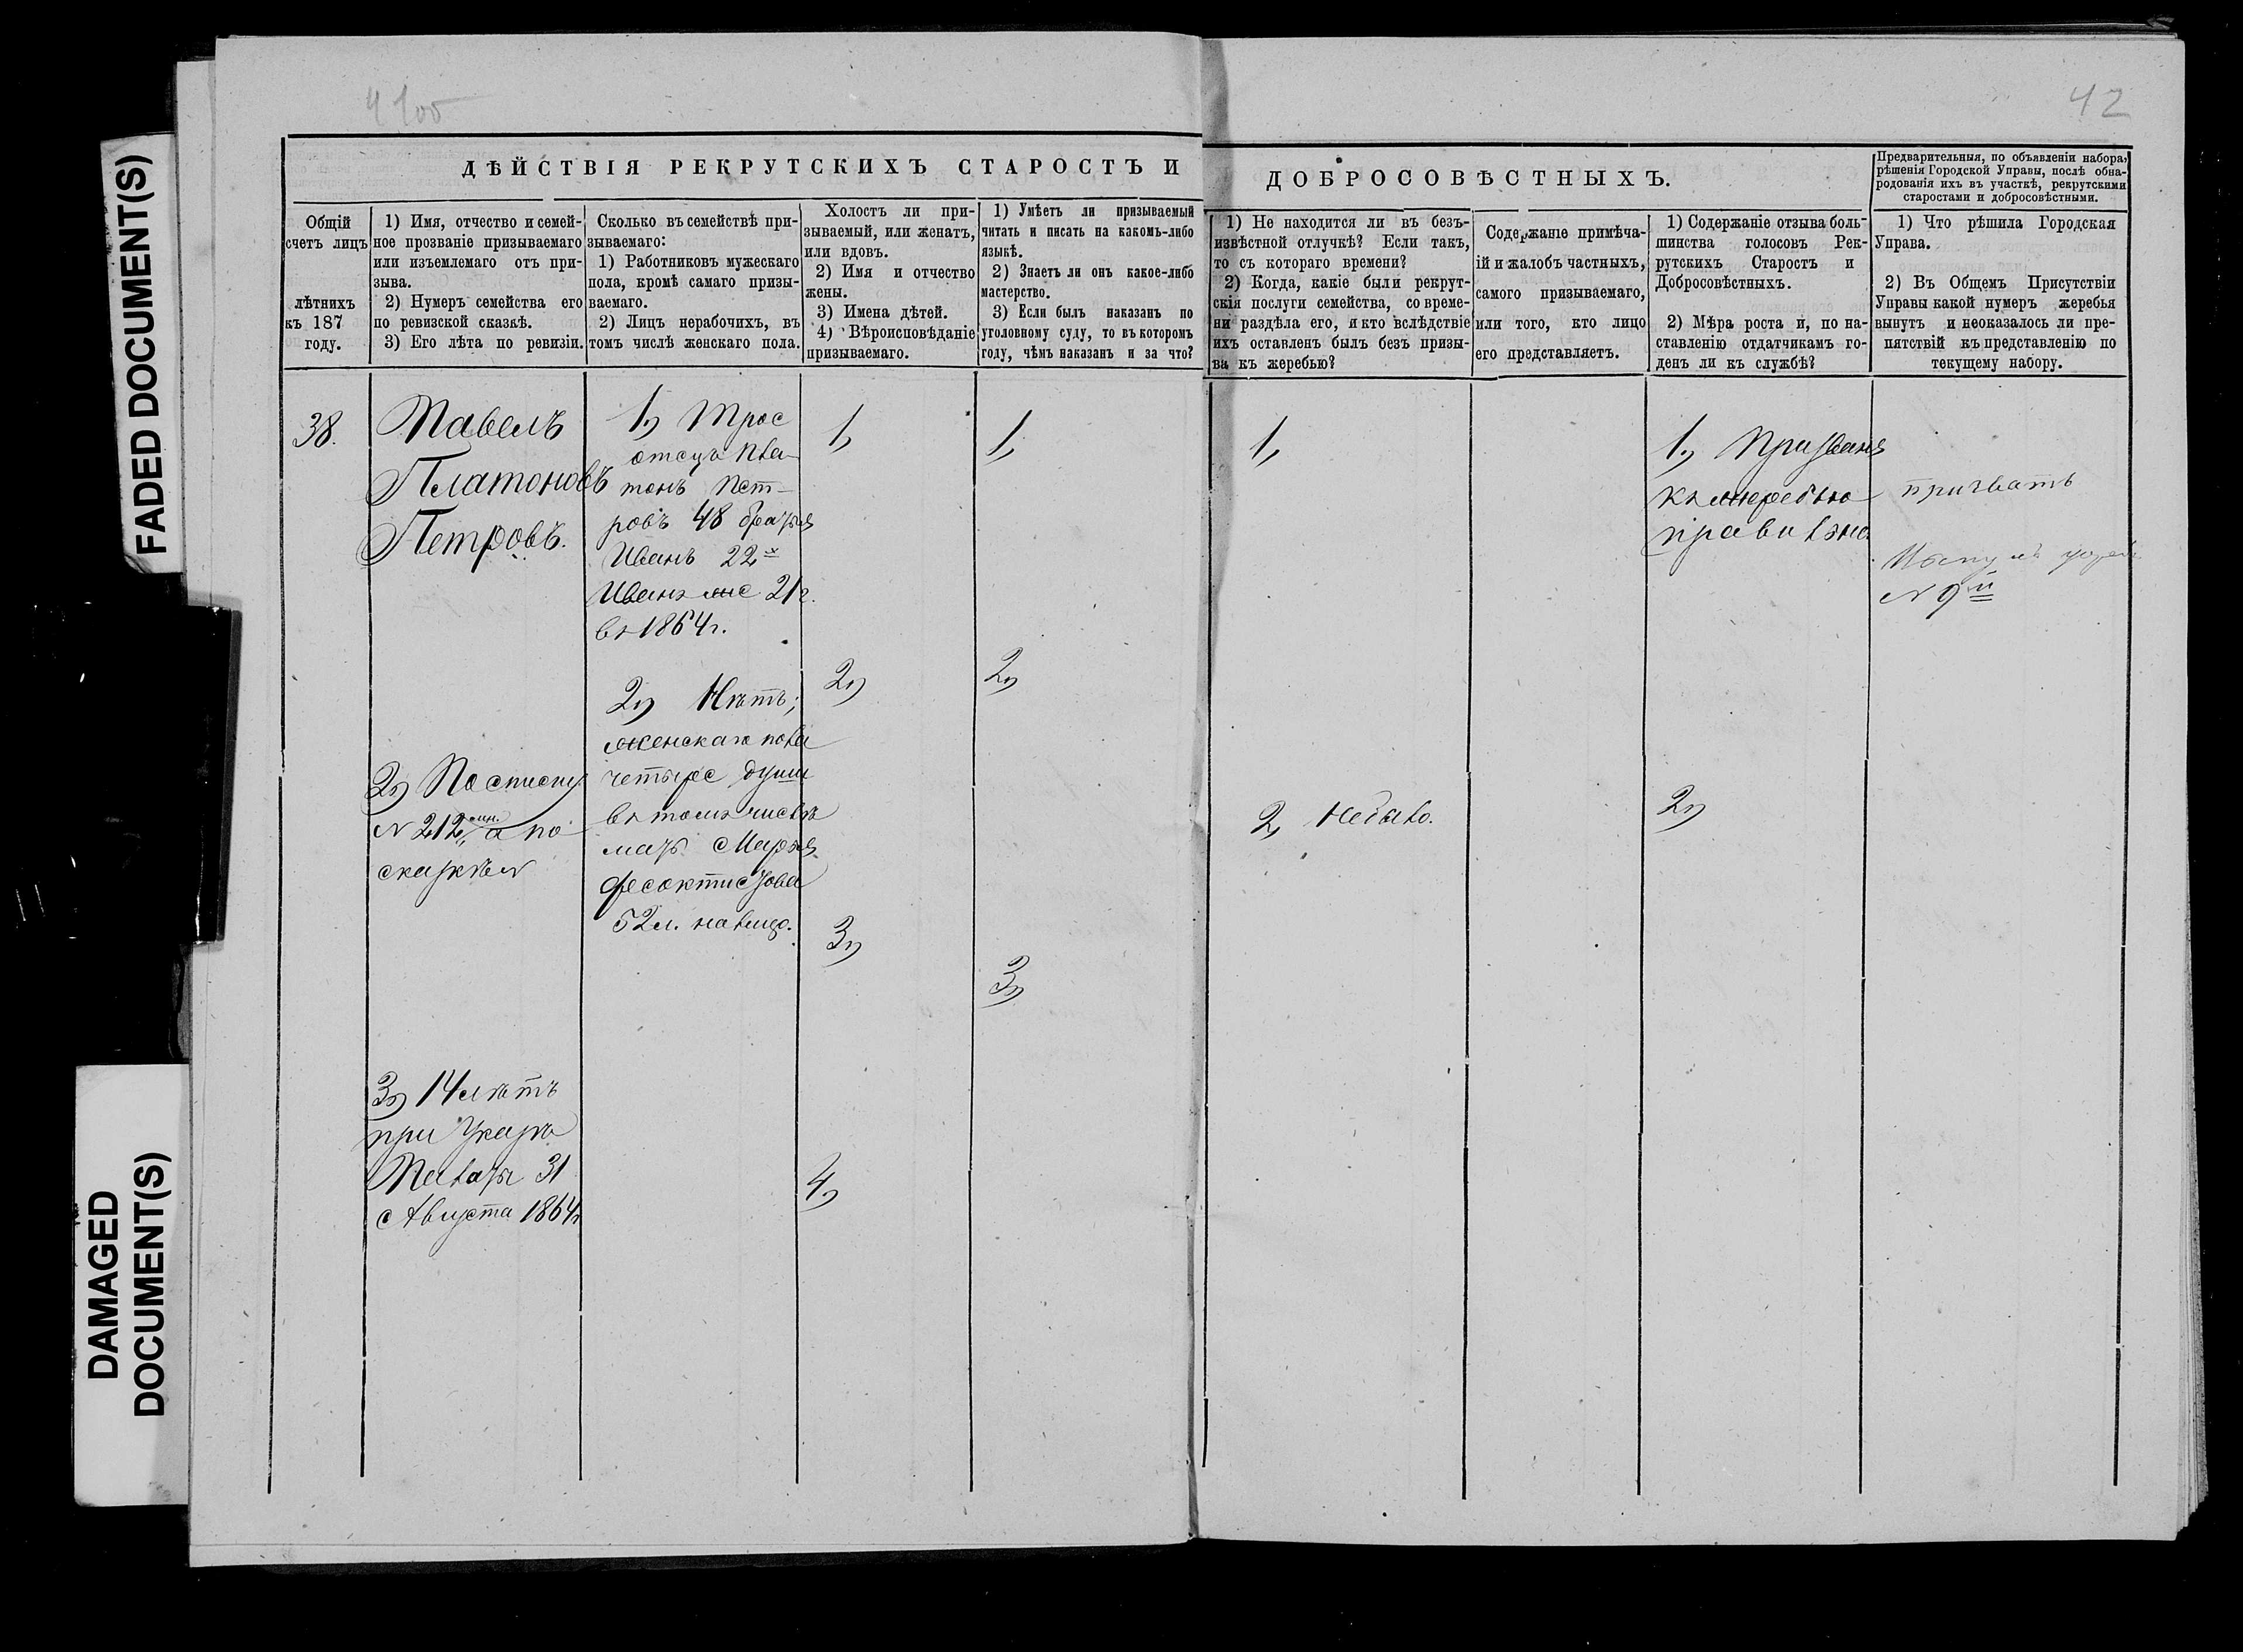 FADED DOCUMENT(S)
DAMAGED
DOCUMENT(S)
42
ДѢЙСТВІЯ РЕКРУТСКИХЪ СТАРОСТЪ И
ДОБРОСОВѢСТНЫХЪ.
Предварительныя, по объявленіи набора,
рѣшенія Городской Управы, послѣ обна-
родованія ихъ въ участкѣ, рекрутскими
старостами и добросовѣстными.
Общій
счетъ лицъ
лѣтнихъ
къ 187
году.
1) Имя, отчество и семей-
ное прозваніе призываемаго
или изъемлемаго отъ при-
зыва.
2) Нумеръ семейства его
по ревизской сказкѣ.
3) Его лѣта по ревизіи.
Сколько въ семействѣ при-
зываемаго:
1) Работниковъ мужескаго
пола, кромѣ самаго призы-
ваемаго.
2) Лицъ нерабочихъ, въ
томъ числѣ женскаго пола.
Холостъ ли при-
зываемый, или женатъ,
или вдовъ.
2) Имя и отчество
жены.
3) Имена дѣтей.
4) Вѣроисповѣданіе
призываемаго.
1) Умѣетъ ли призываемый
читать и писать на какомъ-либо
языкѣ.
2) Знаетъ ли онъ какое-либо
мастерство.
3) Если былъ наказанъ по
уголовному суду, то въ которомъ
году, чѣмъ наказанъ и за что?
1) Не находится ли въ безъ-
извѣстной отлучкѣ? Если такъ,
то съ котораго времени?
2) Когда, какіе были рекрут-
скія послуги семейства, со време-
ни раздѣла его, и кто вслѣдствіе
ихъ оставленъ былъ безъ призы-
ва къ жеребью?
Содержаніе примѣча-
ній и жалобъ частныхъ,
самого призываемаго,
или того, кто лицо
его представляетъ.
1) Содержаніе отзыва боль-
шинства голосовъ Рек-
рутскихъ Старостъ и
Добросовѣстныхъ.
2) Мѣра роста и, по на-
ставленію отдатчикамъ го-
денъ ли къ службѣ?
1) Что рѣшила Городская
Управа.
2) Въ Общемъ Присутствіи
Управы какой нумеръ жеребья
вынутъ и неоказалось ли пре-
пятствій къ представленію по
текущему набору.
38.
Павелъ
Платоновъ
Петровъ.
2) По списку
№ 212 а по
сказкѣ №
3) 14 лѣтъ
при Указѣ
31
Августа 1864г
1) Трое
отецъ Пла-
тонъ Пет-
ровъ 48 братья
Иванъ 22х
Иванъ же 21г.
въ 1864г.
2) Нѣтъ;
женскаго пола
четыре души
въ томъ числѣ
мать Марья
Феоктистова
52л. налицо.
1)
2)
3)
4)
1)
2)
3)
1)
2) Небыло.
1) Призванъ
къ жеребью
правильно
2)
призвать
№ 9й